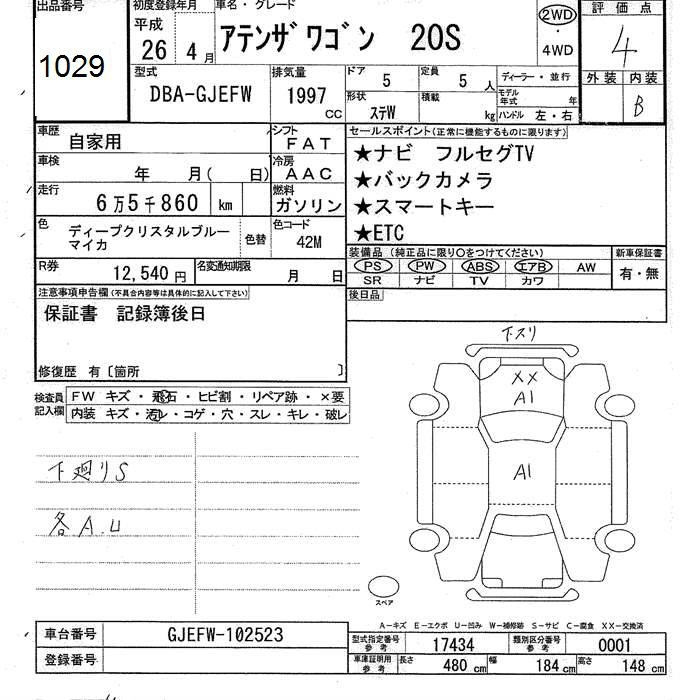 出品番号
1029
初度登録年月
平成
26年4月
車名・グレード
アテンザワゴン 20S
2WD
・
4WD
評価点
4
外装 内装
B
型式
DBA-GJEFW
排気量
1997
CC
ドア
5
定員
5人
形状
ステW
積載
kg
ディーラー・並行
モデル年式 年
ハンドル 左・右
車歴
自家用
シフト
FAT
車検
年 月( 日)
冷房
AAC
走行
6万5千860 km
燃料
ガソリン
色
ディープクリスタルブルー
マイカ
色替
色コード
42M
R券
12,540円
名変通知期限
月 日
セールスポイント(正常に機能するものに限ります)
★ナビ フルセグTV
★バックカメラ
★スマートキー
★ETC
装備品(純正品に限り〇をつけてください)
PS PW ABS エアB AW
SR ナビ TV カワ
新車保証書
有・無
後日品
注意事項申告欄(不具合内容等は具体的に記入して下さい)
保証書 記録簿後日
修復歴 有〔箇所 〕
検査員
記入欄
FW キズ・飛石・ヒビ割・リペア跡・×要
内装 キズ・汚レ・コゲ・穴・スレ・キレ・破レ
下廻りS
各A.U
下スリ
XX
A1
A1
スペア
A-キズ E-エクボ U-凹み W-補修跡 S-サビ C-腐食 XX-交換済
車台番号
GJEFW-102523
登録番号
型式指定番号
参考
17434
類別区分番号
参考
0001
車庫証明用
参考
長さ 480cm 幅 184cm 高さ 148cm